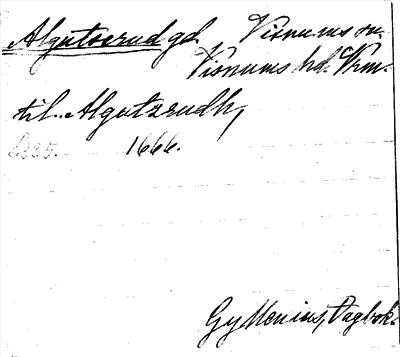 Algutsrud gd. Visnums sn.
Visnums hd. Vrm.
til.. Algutzrudh,
1666.
Gyllenius, Dagbok.